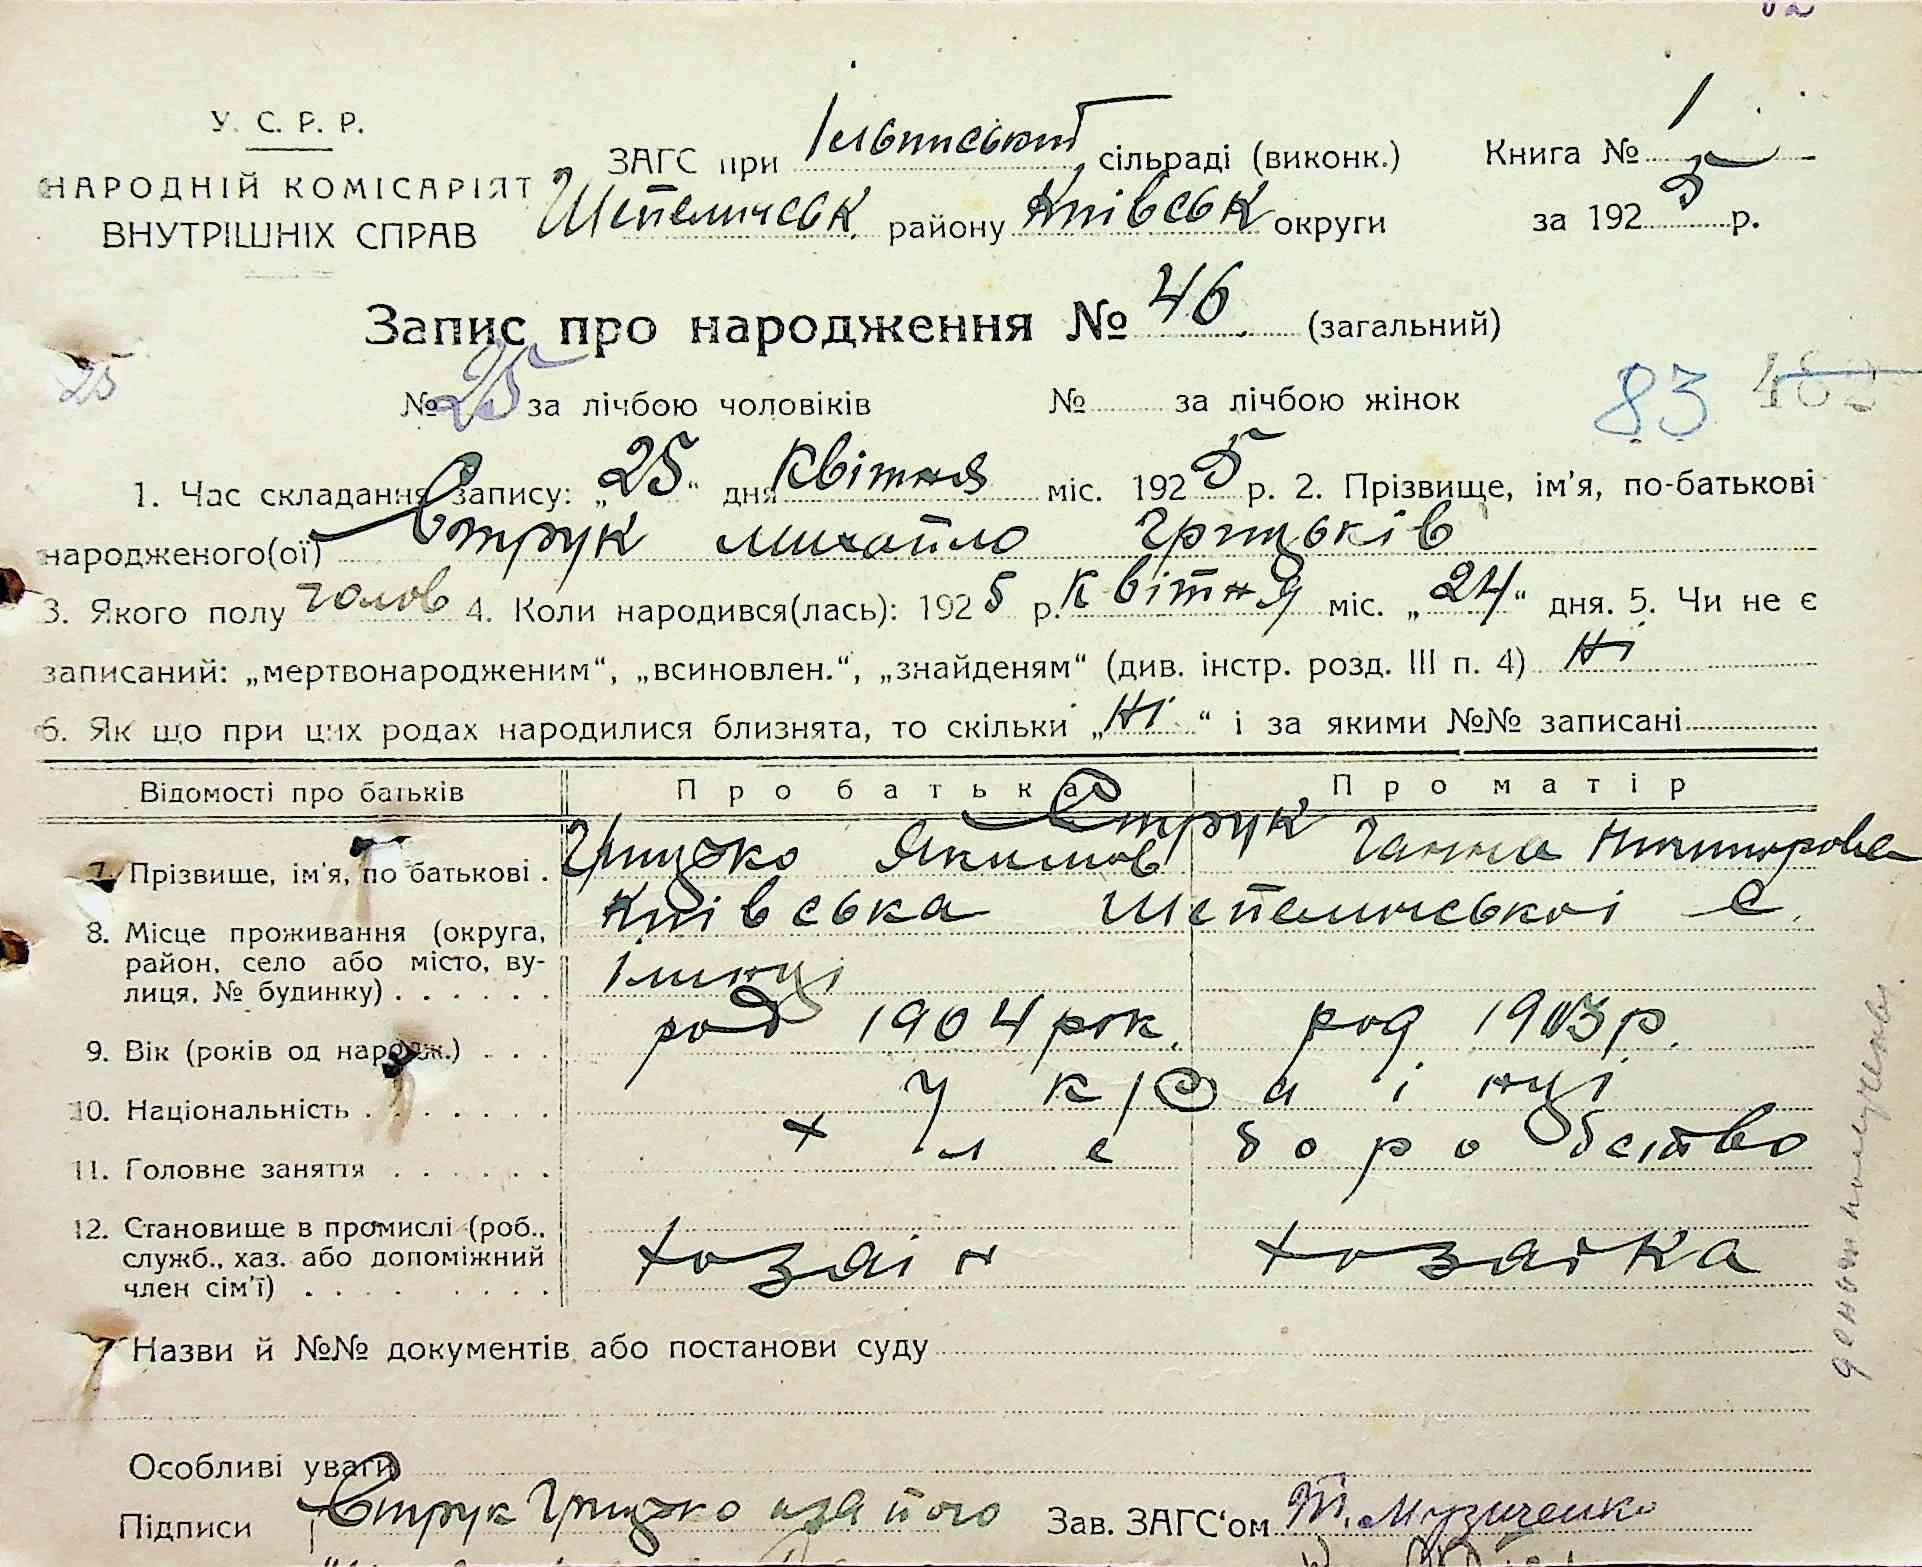 У. С. Р. Р.
НАРОДНІЙ КОМІСАРІЯТ
ВНУТРІШНІХ СПРАВ
ЗАГС при Ільпиській сільраді (виконк.)
Шепеличськ. району Київськ округи
Книга № 1
за 1925 р.
Запис про народження № 46 (загальний)
25
№ 25 за лічбою чоловіків № за лічбою жінок
83 482
1. Час складання запису: „25“ дня Квітня міс. 1925 р. 2. Прізвище, ім'я, по-батькові
народженого(ої) Струк Михайло Грицьків
3. Якого полу чолов 4. Коли народився(лась): 1925 р. Квітня міс. „24“ дня. 5. Чи не є
записаний: „мертвонародженим“, „всиновлен.“, „знайденям“ (див. інстр. розд. III п. 4) Ні
6. Як що при цих родах народилися близнята, то скільки „Ні“ і за якими №№ записані
Відомості про батьків Про батька Про матір
Струк
7. Прізвище, ім'я, по батькові . Грицько Якимов Ганна Ничипорова
8. Місце проживання (округа, Київська Шепеличської с.
район, село або місто, ву-
лиця, № будинку) . . . . . . Ілинці
9. Вік (років од народж.) . . . род 1904 рок. род 1903 р.
10. Національність . . . . . . . Українці
11. Головне заняття . . . . . . хлеборобство
12. Становище в промислі (роб.,
служб., хаз. або допоміжний хозаін хозаіка
член сім'ї) . . . . . . . . .
Назви й №№ документів або постанови суду
Особливі уваги
Підписи Струк Грицько Зав. ЗАГС'ом Музиченко